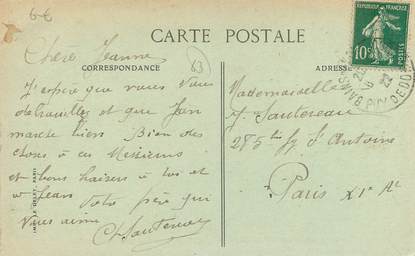 66
CARTE POSTALE
REPUBLIQUE FRANÇAISE
10c
POSTES
CORRESPONDANCE
63
ADRESSE
Chère Jeanne
J'espère que vous vous
débrouillez et que Jean
marche bien Bien des
choses à ces Messieurs
et bons baisers à toi et
à Jean Votre père qui
vous aime
Sautereau
Mademoiselle
J. Sautereau
285 bis Fg St Antoine
Paris XIe Ar
PARIS